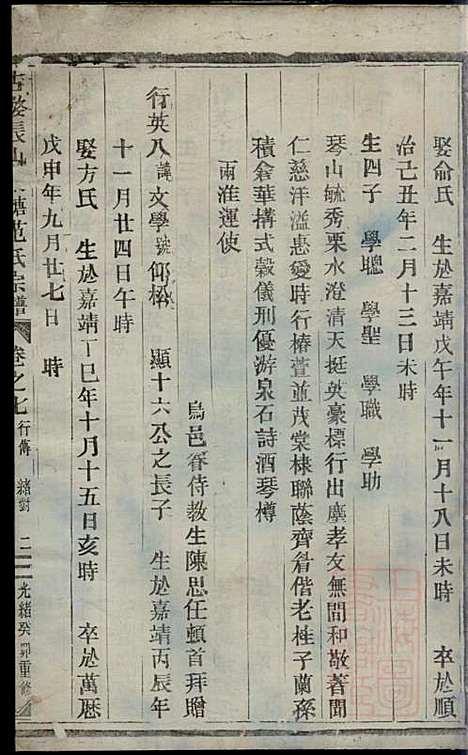 娶俞氏　生於嘉靖戊午年十一月十八日未時　卒於順
治己丑年二月十三日未時
生四子　學聰　學聖　學職　學助
琴山毓秀栗水澄清天挺英豪標行出塵孝友無間和敬著聞
仁慈洋溢惠愛時行椿萱並茂棠棣聯蔭齊眷偕老桂子蘭孫
積倉華搆式穀儀刑優游泉石詩酒琴樽
烏邑眷侍教生陳思任頓首拜贈
兩淮運使
行英八諱文學號仰松　顯十六公之長子　生於嘉靖丙辰年
十一月廿四日午時
娶方氏　生於嘉靖丁巳年十月十五日亥時　卒於萬曆
戊申年九月廿七日　時
古婺長山　塘范氏宗譜　卷之七　行傳　緒對　二　光緒癸卯重修